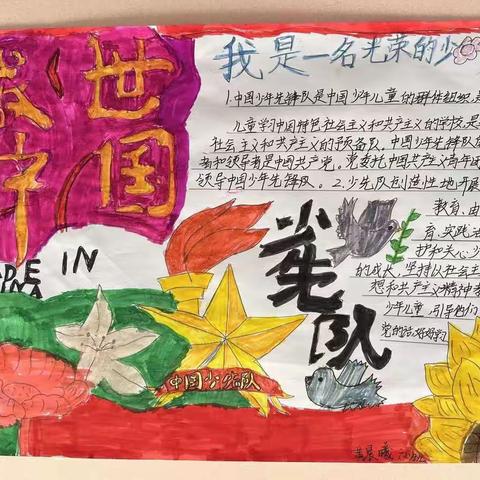 我是一名光荣的少
1.中国少年先锋队是中国少年儿童的群体组织,是
儿童学习中国特色社会主义和共产主义的学校,是
社会主义和共产主义的预备队,中国少年先锋队
者和领导者是中国共产党。党委托中国共产主义青年团
领导中国少年先锋队。2.少先队创造性地开展
教育,由
育、实践活
护和关心少
的成长,坚持以社会主
想和共产主义精神
少年儿童,引导他们
党的话,好好学
世
国
中
ADE IN
INA
少先队
中国少先队